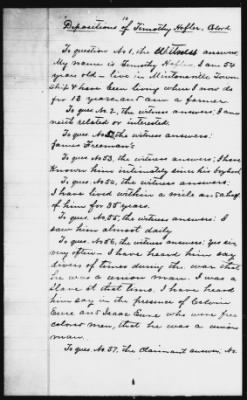 "Depositions" of Timothy Hofler, Cold.
To question No. 1, the Witness answered
My name is Timothy Hofler, I am 54
years old - live in Mintonsville Town
ship & have been living where I now do
for 12 years, and am a farmer
To ques No 2, the witness answers; I am
not related or interested.
To ques No 52 the witness answers:
James Freeman's
To ques No 53, the witness answers; I have
Known him intimately since his boyhood
To ques No 54, the witness answers;
I have lived within a mile and a half
of him for 35 years.
To ques. No. 55, the witness answers; I
saw him almost daily
To ques No 56, the witness answers; yes sir
very often. I have heard him say
divers of times during the war that
he was a union man. I was a
slave at that time. I have heard
him say in the presence of Calvin
Cuue and Isaac Cuue who were free
colored men, that he was a union
man.
To ques. No. 57, the claimant answers. No